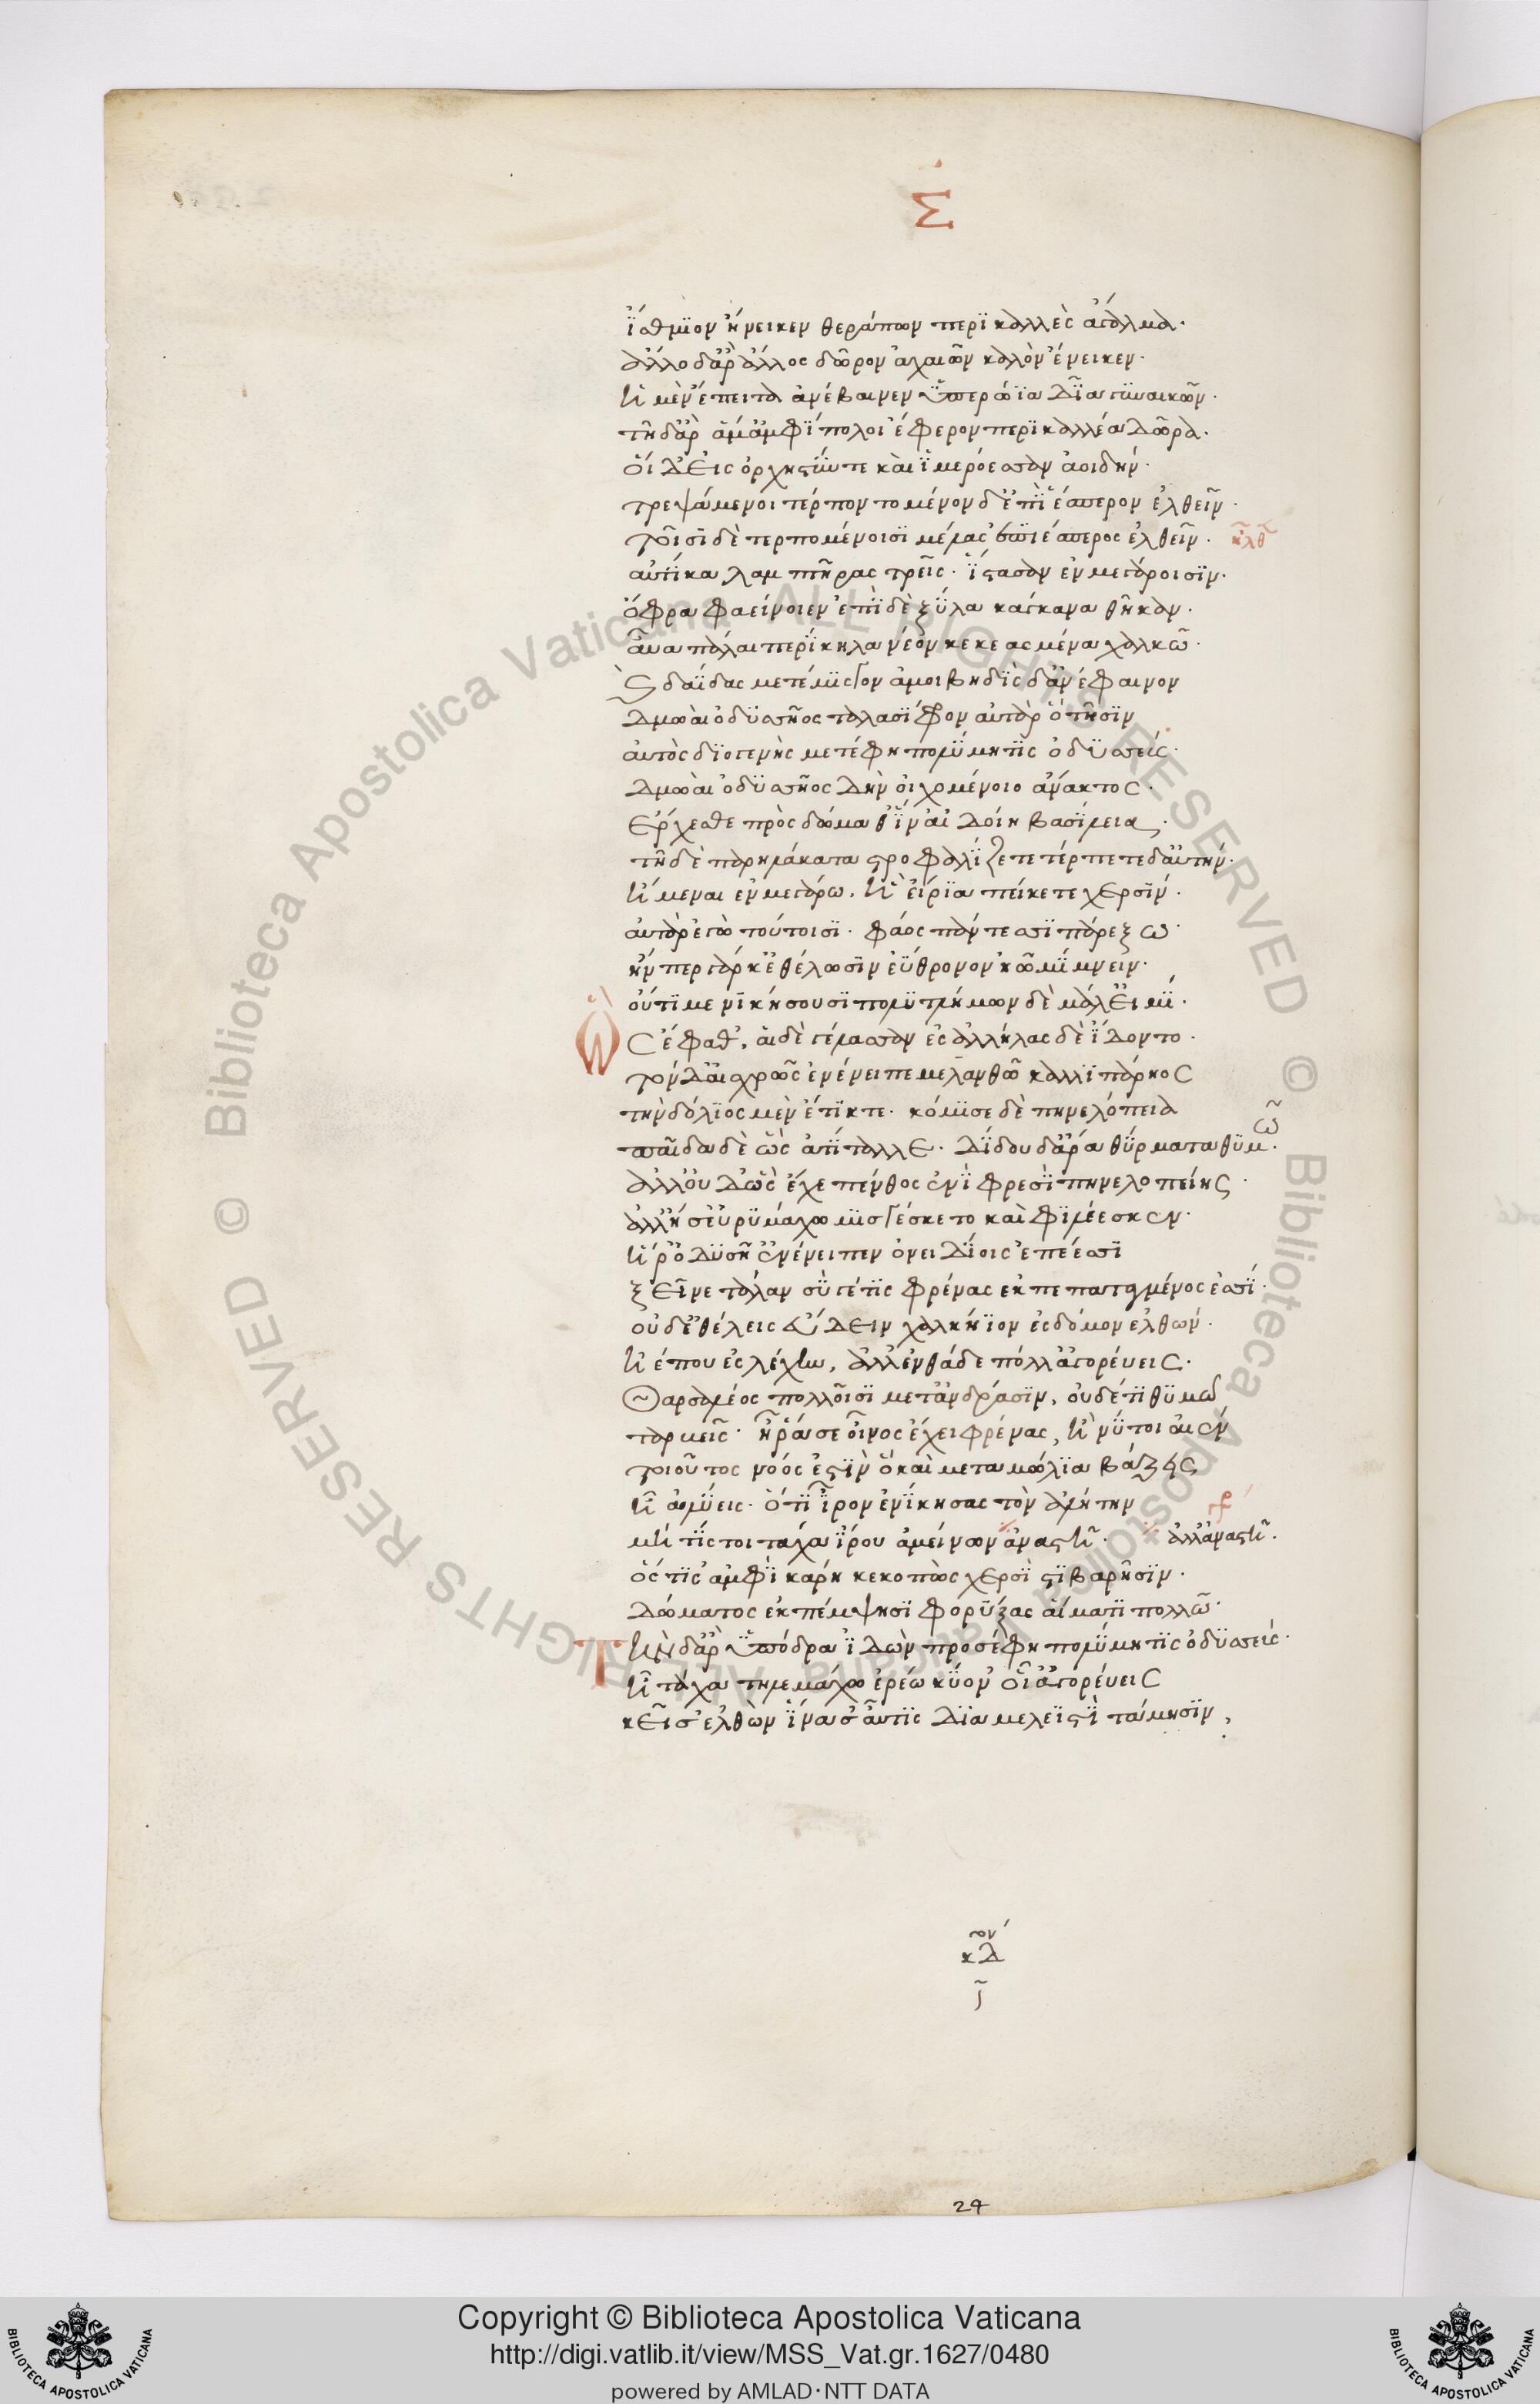 Σ
ἴσθμιον ἤνεικεν θεράπων περὶ καλλὲς ἄγαλμα·
ἄλλο δ' ἄρ' ἄλλος δῶρον ἀχαιῶν καλὸν ἔνεικεν·
ἡ μὲν ἔπειτα ἀνέβαινεν ὑπερώϊα δῖα γυναικῶν·
τῆ δ' ἄρ' ἅμ' ἀμφίπολοι ἔφερον περικαλλέα δῶρα·
οἱ δ' εἰς ὀρχηστύν τε καὶ ἱμερόεσσαν ἀοιδήν·
τρεψάμενοι τέρποντο μένον δ' ἐπὶ ἕσπερον ἐλθεῖν·
τοῖσι δὲ τερπομένοισι μέλας ἐπὶ ἕσπερος ἐλθεῖν·
αὐτίκα λαμπτῆρας τρεῖς· ἵστασαν ἐν μεγάροισιν·
ὄφρα φαείνοιεν ἐπὶ δὲ ξύλα κάγκανα θῆκαν·
αὖα πάλαι περίκηλα νέον κεκεασμένα χαλκῶ·
ϗ δαΐδας μετέμισγον ἀμοιβηδὶς δ' ἀνέφαινον
δμωαὶ ὀδυσσῆος ταλασίφρον αὐτὰρ ὁ τῆσιν
αὐτὸς διογενὴς μετέφη πολύμητις ὀδυσσεύς·
δμωαὶ ὀδυσσῆος δὴν οἰχομένοιο ἄνακτος·
ἔρχεσθε πρὸς δώμαθ' ἵν' αἰδοίη βασίλεια·
τῆ δὲ παρ' ἠλάκατα στροφαλίζετε τέρπετε δ' αὐτήν·
ἥμεναι ἐν μεγάρω, ἢ εἴρια πείκετε χερσίν·
αὐτὰρ ἐγὼ τούτοισι· φάος πάντεσσι παρέξω·
ἤν περ γάρ κ' ἐθέλωσιν ἐΰθρονον ἠῶ μίμνειν·
οὔτί με νικήσουσι πολυτλήμων δὲ μάλ' εἰμί·
Ὣς ἔφαθ', αἱ δὲ γέλασσαν ἐς ἀλλήλας δὲ ἴδοντο·
τὸν δ' αἰσχρῶς ἐνένειπε μελανθὼ καλλιπάρηος
τὴν δόλιος μὲν ἔτικτε· κόμισε δὲ πηνελόπεια
παῖδα δὲ ὣς ἀτίταλλε· δίδου δ' ἄρ' ἀθύρματα θυμῶ·
ἀλλ' οὐδ' ὧς ἔχε πένθος ἐνὶ φρεσὶ πηνελοπείης·
ἀλλ' ἥ γ' εὐρυμάχω μισγέσκετο καὶ φιλέεσκεν·
ἥ ῥ' ὀδυσῆ' ἐνένειπεν ὀνειδίοις ἐπέεσσι
ξεῖνε τάλαν σύ γέ τις φρένας ἐκπεπαταγμένος ἐσσί·
οὐδ' ἐθέλεις εὕδειν χαλκήϊον ἐς δόμον ἐλθών·
ἠέ που ἐς λέσχην, ἀλλ' ἐνθάδε πόλλ' ἀγορεύεις·
θαρσαλέος πολλοῖσι μετ' ἀνδράσιν, οὐδέ τι θυμῶ
ταρβεῖς· ἦ ῥά σε οἶνος ἔχει φρένας, ἤ νύ τοι αἰὲν
τοιοῦτος νόος ἐστὶν ὃ καὶ μεταμώλια βάζεις
ἦ ἀλύεις· ὅτι ἶρον ἐνίκησας τὸν ἀλήτην
μή τίς τοι τάχα ἴρου ἀμείνων ἀναστῆ· ἄλλ' ἀναστῆ·
ὅς τις ἀμφὶ κάρη κεκοπὼς χερσὶ στιβαρῆσιν·
δώματος ἐκπέμψησι φορύξας αἵματι πολλῶ·
Τὴν δ' ἄρ' ὑπόδρα ἰδὼν προσέφη πολύμητις ὀδυσσεύς·
ἦ τάχα τηλεμάχω ἐρέω κύον οἷ' ἀγορεύεις
κεῖσ' ἐλθὼν ἵνα σ' αὖτις διὰ μελεϊστὶ τάμησιν,
24
Copyright © Biblioteca Apostolica Vaticana
http://digi.vatlib.it/view/MSS_Vat.gr.1627/0480
powered by AMLAD·NTT DATA
BIBLIOTECA APOSTOLICA VATICANA
BIBLIOTECA APOSTOLICA VATICANA
© Biblioteca Apostolica Vaticana ALL RIGHTS RESERVED
© Biblioteca Apostolica Vaticana ALL RIGHTS RESERVED